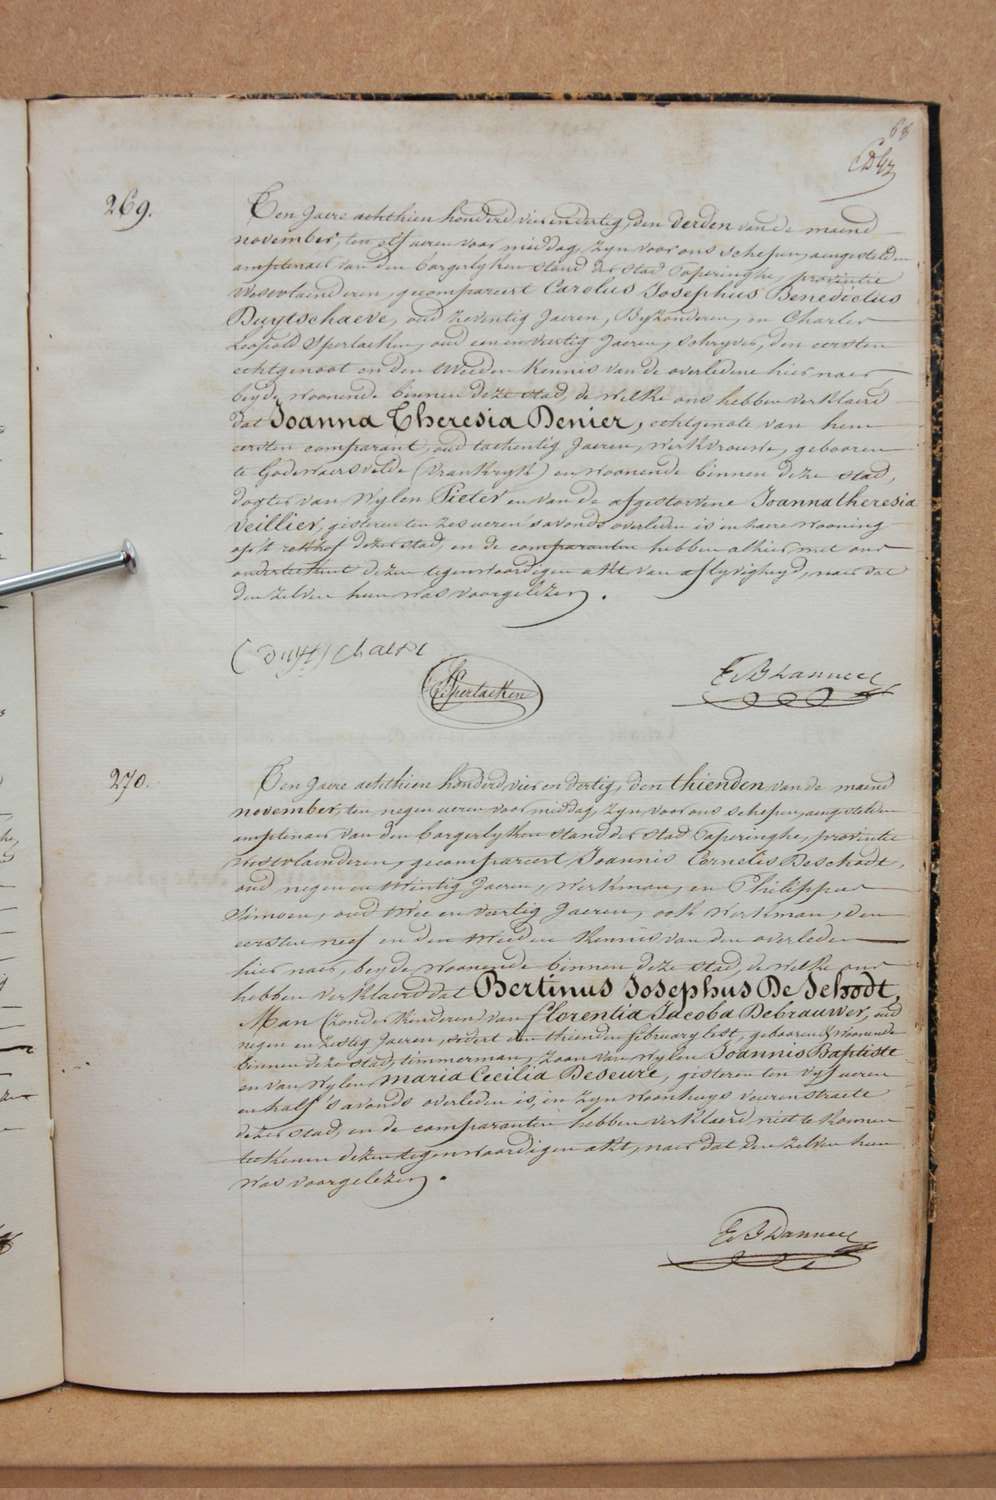 68
269.
Ten Jaere achthien honderd vier en dertig, den derden van de maend
november, ten elf ueren voor middag, zyn voor ons schepen, aengestelden
amptenaer van den borgerlyken stand der stad Poperinghe, provintie
Westvlaenderen, gecompareert Carolus Josephus Benedictus
Duytschaeve, oud zeventig Jaeren, Byzonderen, en Charles
Leopold Sperlaeken, oud een en veertig Jaeren, schryver, den eersten
echtgenoot en den tweeden kennis van de overledene hier naer,
beyde woonende binnen deze stad, de welke ons hebben verklaerd
dat Joanna Theresia Denier, echtgenote van hem
eersten comparant, oud tachentig Jaeren, werkvrouwe, gebooren
te Godewaersvelde (Vrankryk) en woonende binnen deze stad,
dogter van wylen Pieter en van de afgestorvene Joanna theresia
Veillier, gisteren ten zes ueren 's avonds overleden is in haere wooning
op 't rekhof dezer stad, en de comparanten hebben alhier met ons
onderteekent dezen tegenwoordigen akt van aflyvigheyd, naer dat
den zelven hun was voorgelezen.
Duytschaeve
Sperlaeken
E. B. Dannee
270.
Ten Jaere achthien honderd vier en dertig, den thienden van de maend
november, ten negen ueren voor middag, zyn voor ons schepen, aengestelden
amptenaer van den borgerlyken stand der stad Poperinghe, provintie
Westvlaenderen, gecompareert Joannis Cornelis Deschodt,
oud negen en twintig Jaeren, werkman, en Philippus
Simoen, oud twee en veertig Jaeren, ook werkman, den
eersten neef en den tweeden kennis van den overleden
hier naer, beyde woonende binnen deze stad, de welke ons
hebben verklaerd dat Bertinus Josephus De Schodt,
Man (zonder kinderen) van Florentia Jacoba Debrauwer, oud
negen en zestig Jaeren, sedert den thienden february lest, gebooren & woonende
binnen deze stad, timmerman, zoon van wylen Joannis Baptiste
en van wylen Maria Cecilia Deseure, gisteren ten vyf ueren
en half 's avonds overleden is, in zyn woonhuys veurenstraete
dezer stad, en de comparanten hebben verklaerd niet te konnen
teekenen dezen tegenwoordigen akt, naer dat den zelven hun
was voorgelezen.
E. B. Dannee